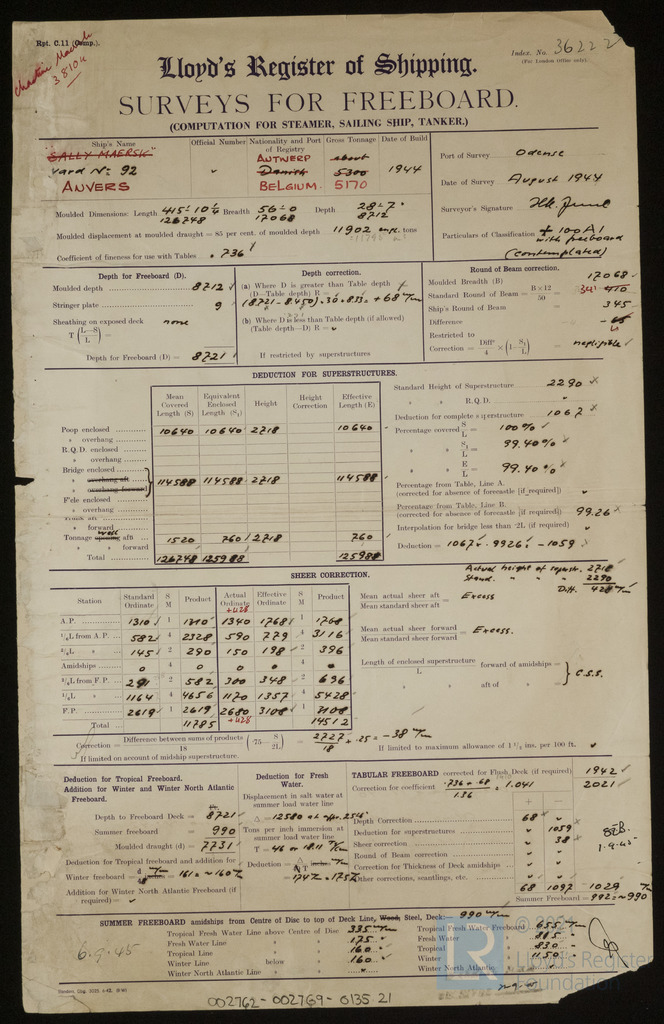 Rpt. C.11 (Comp.).
Index. No. 36222
(For London Office only).
Chastine Maersk
38104
Lloyd's Register of Shipping.
SURVEYS FOR FREEBOARD.
(COMPUTATION FOR STEAMER, SAILING SHIP, TANKER.)
Ship's Name
"SALLY MAERSK"
Yard No 92
ANVERS
Official Number
Nationality and Port of Registry
ANTWERP
Danish
BELGIUM.
Gross Tonnage
about
5300
5170
Date of Build
1944
Port of Survey Odense
Date of Survey August 1944
Surveyor's Signature
Particulars of Classification + 100 A1
with freeboard
(contemplated)
Moulded Dimensions: Length 415'-10 1/4 Breadth 56-0 Depth 28-7"
126748 17068 8712
Moulded displacement at moulded draught = 85 per cent. of moulded depth 11902 tons
Coefficient of fineness for use with Tables .736
Depth for Freeboard (D).
Moulded depth 8712
Stringer plate 9
Sheathing on exposed deck none
T (L-S/L) =
Depth for Freeboard (D) = 8721
Depth correction.
(a) Where D is greater than Table depth
(D-Table depth) R =
(8721-8450).30.833 = +68 m/m
(b) Where D is less than Table depth (if allowed)
(Table depth-D) R =
If restricted by superstructures
Round of Beam correction.
Moulded Breadth (B) 17068
Standard Round of Beam = B×12/50 = 341
Ship's Round of Beam 345
Difference
Restricted to
Correction = Diff/4 × (1-S1/L) negligible
DEDUCTION FOR SUPERSTRUCTURES.
Mean Covered Length (S) Equivalent Enclosed Length (S1) Height Height Correction Effective Length (E)
Poop enclosed 10640 10640 2718 10640
" overhang
R.Q.D. enclosed
" overhang
Bridge enclosed
" overhang aft 114588 114588 2718 114588
" overhang forward
F'cle enclosed
" overhang
Trunk aft
" forward
Tonnage well aft 1520 760 2718 760
" " forward
Total 126748 125988 125988
Standard Height of Superstructure 2290
" " R.Q.D. "
Deduction for complete superstructure 1067
Percentage covered S/L = 100%
" S1/L = 99.40%
" E/L = 99.40%
Percentage from Table, Line A.
(corrected for absence of forecastle [if required])
Percentage from Table, Line B. 99.26
(corrected for absence of forecastle [if required])
Interpolation for bridge less than .2L (if required)
Deduction = 1067 × .9926 = -1059
SHEER CORRECTION.
Actual height of superst. 2718
Stand. " " " 2290
Diff. 428 m/m
Station Standard Ordinate S M Product Actual Ordinate Effective Ordinate S M Product
+428
A.P. 1310 1 1310 1340 1768 1 1768
1/6L from A.P. 582 4 2328 590 779 4 3116
2/6L " 145 2 290 150 198 2 396
Amidships 0 4 0 0 0 4 0
2/6L from F.P. 291 2 582 300 348 2 696
1/6L " 1164 4 4656 1170 1357 4 5428
F.P. 2619 1 2619 2680 3108 1 3108
Total 11785 +428 14512
Mean actual sheer aft
Mean standard sheer aft = Excess
Mean actual sheer forward
Mean standard sheer forward = Excess.
Length of enclosed superstructure forward of amidships =
L
" " aft of " =
C.S.S.
Correction = Difference between sums of products/18 (.75 - S/2L) = 2727/18 × .25 = -38 m/m
If limited on account of midship superstructure.
If limited to maximum allowance of 1 1/2 ins. per 100 ft.
Deduction for Tropical Freeboard.
Addition for Winter and Winter North Atlantic Freeboard.
Depth to Freeboard Deck = 8721
Summer freeboard = 990
Moulded draught (d) = 7731
Deduction for Tropical freeboard and addition for
Winter freeboard = d/48 = 161 = ~160 m/m
Addition for Winter North Atlantic Freeboard (if required) =
Deduction for Fresh Water.
Displacement in salt water at summer load water line
Δ = 12580
Tons per inch immersion at summer load water line
T = 46 or 18.11 T/cm
Deduction = Δ/40T
174 = .175
TABULAR FREEBOARD corrected for Flush Deck (if required) 1942
Correction for coefficient .736+.68/1.36 = 1.041 2021
+ -
Depth Correction 68
Deduction for superstructures 1059
Sheer correction 38
Round of Beam correction
Correction for Thickness of Deck amidships
Other corrections, scantlings, etc.
68 1097 1029
Summer Freeboard = 992 = ~990
1.9.45
SUMMER FREEBOARD amidships from Centre of Disc to top of Deck Line, Wood, Steel, Deck:— 990 m/m
Tropical Fresh Water Line above Centre of Disc 335
Fresh Water Line " " 175
Tropical Line " " 160
Winter Line below " 160
Winter North Atlantic Line " "
Tropical Fresh Water Freeboard 655
Fresh Water " 815
Tropical " 830
Winter " 1150
Winter North Atlantic "
6.9.45
002762-002769-0135 21
Lloyd's Register
Foundation